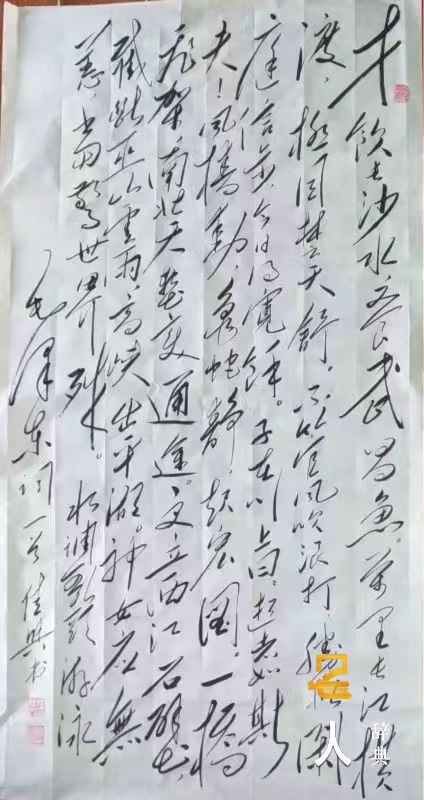 才飲长沙水,又食武昌魚。万里长江横
渡,极目楚天舒。不管风吹浪打,勝似闲
庭信步,今日得宽馀。子在川上曰:逝者如斯
夫!风樯动,龟蛇静,起宏圖。一橋
飞架,南北天堑变通途。更立西江石壁,
截断巫山云雨,高峡出平湖。神女应無
恙,当惊世界殊。 水调歌头 游泳
毛泽东词一首 书
人
辞典